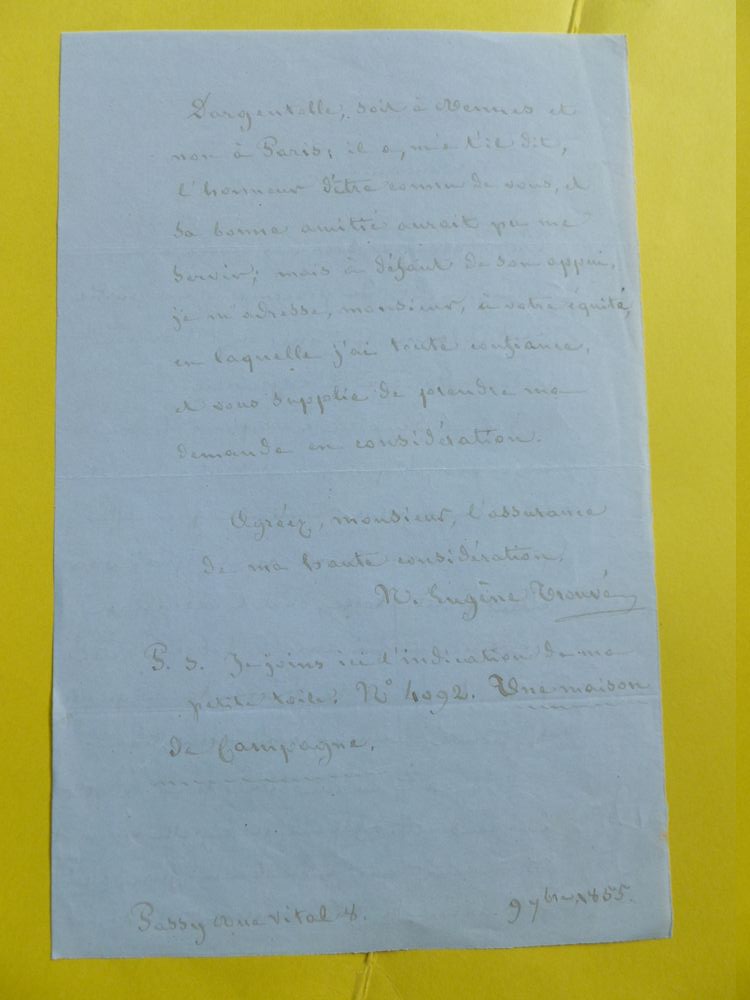 Dargentelle; soit à Rennes et
non à Paris; il a, m'a t'il dit,
l'honneur d'être connu de vous, et
sa bonne amitié aurait pu me
servir; mais à défaut de son appui,
je m'adresse, monsieur, à votre équité,
en laquelle j'ai toute confiance,
et vous supplie de prendre ma
demande en considération.
Agréez, monsieur, l'assurance
de ma haute considération.
N. Eugène Trouvé
P. S. Je joins ici l'indication de ma
petite toile: N° 4092. Une maison
de Campagne.
Passy Rue Vital 8.
9 7bre 1855.